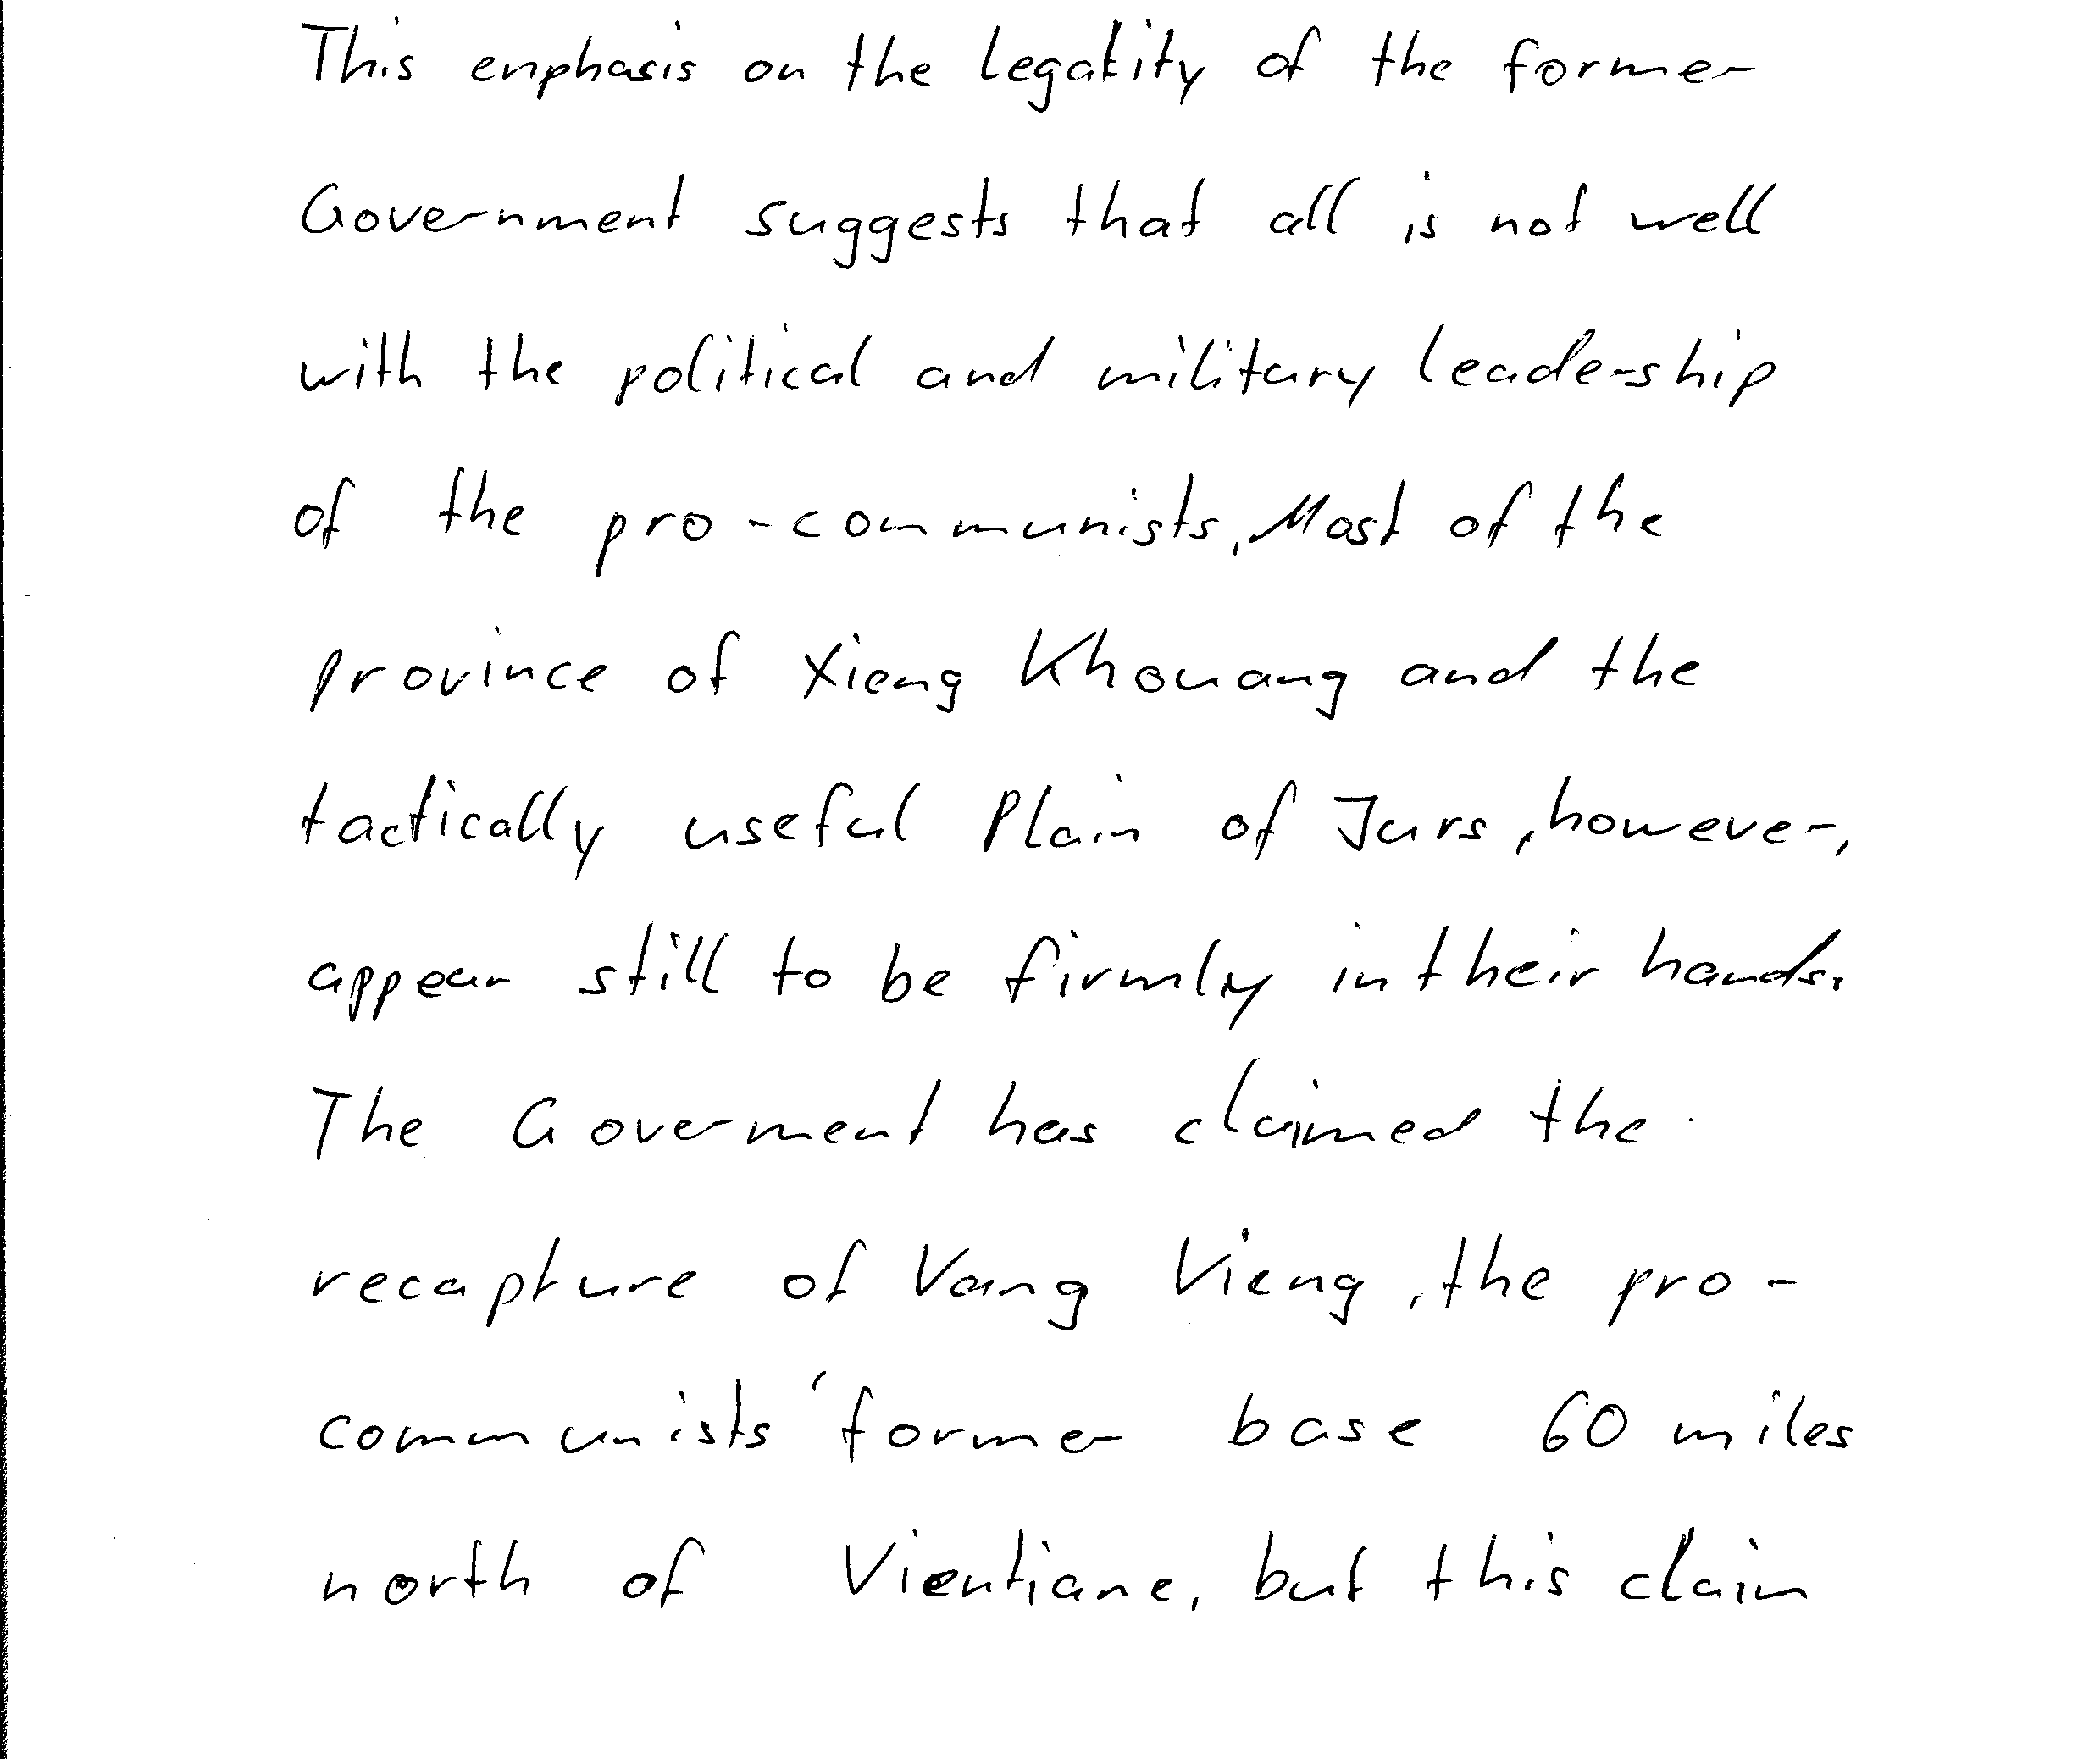 This emphasis on the legality of the former
Government suggests that all is not well
with the political and military leadership
of the pro-communists. Most of the
province of Xieng Khouang and the
tactically useful Plain of Jars, however,
appear still to be firmly in their hands.
The Goverment has claimed the
recapture of Vang Vieng, the pro-
communists' former base 60 miles
north of Vientiane, but this claim